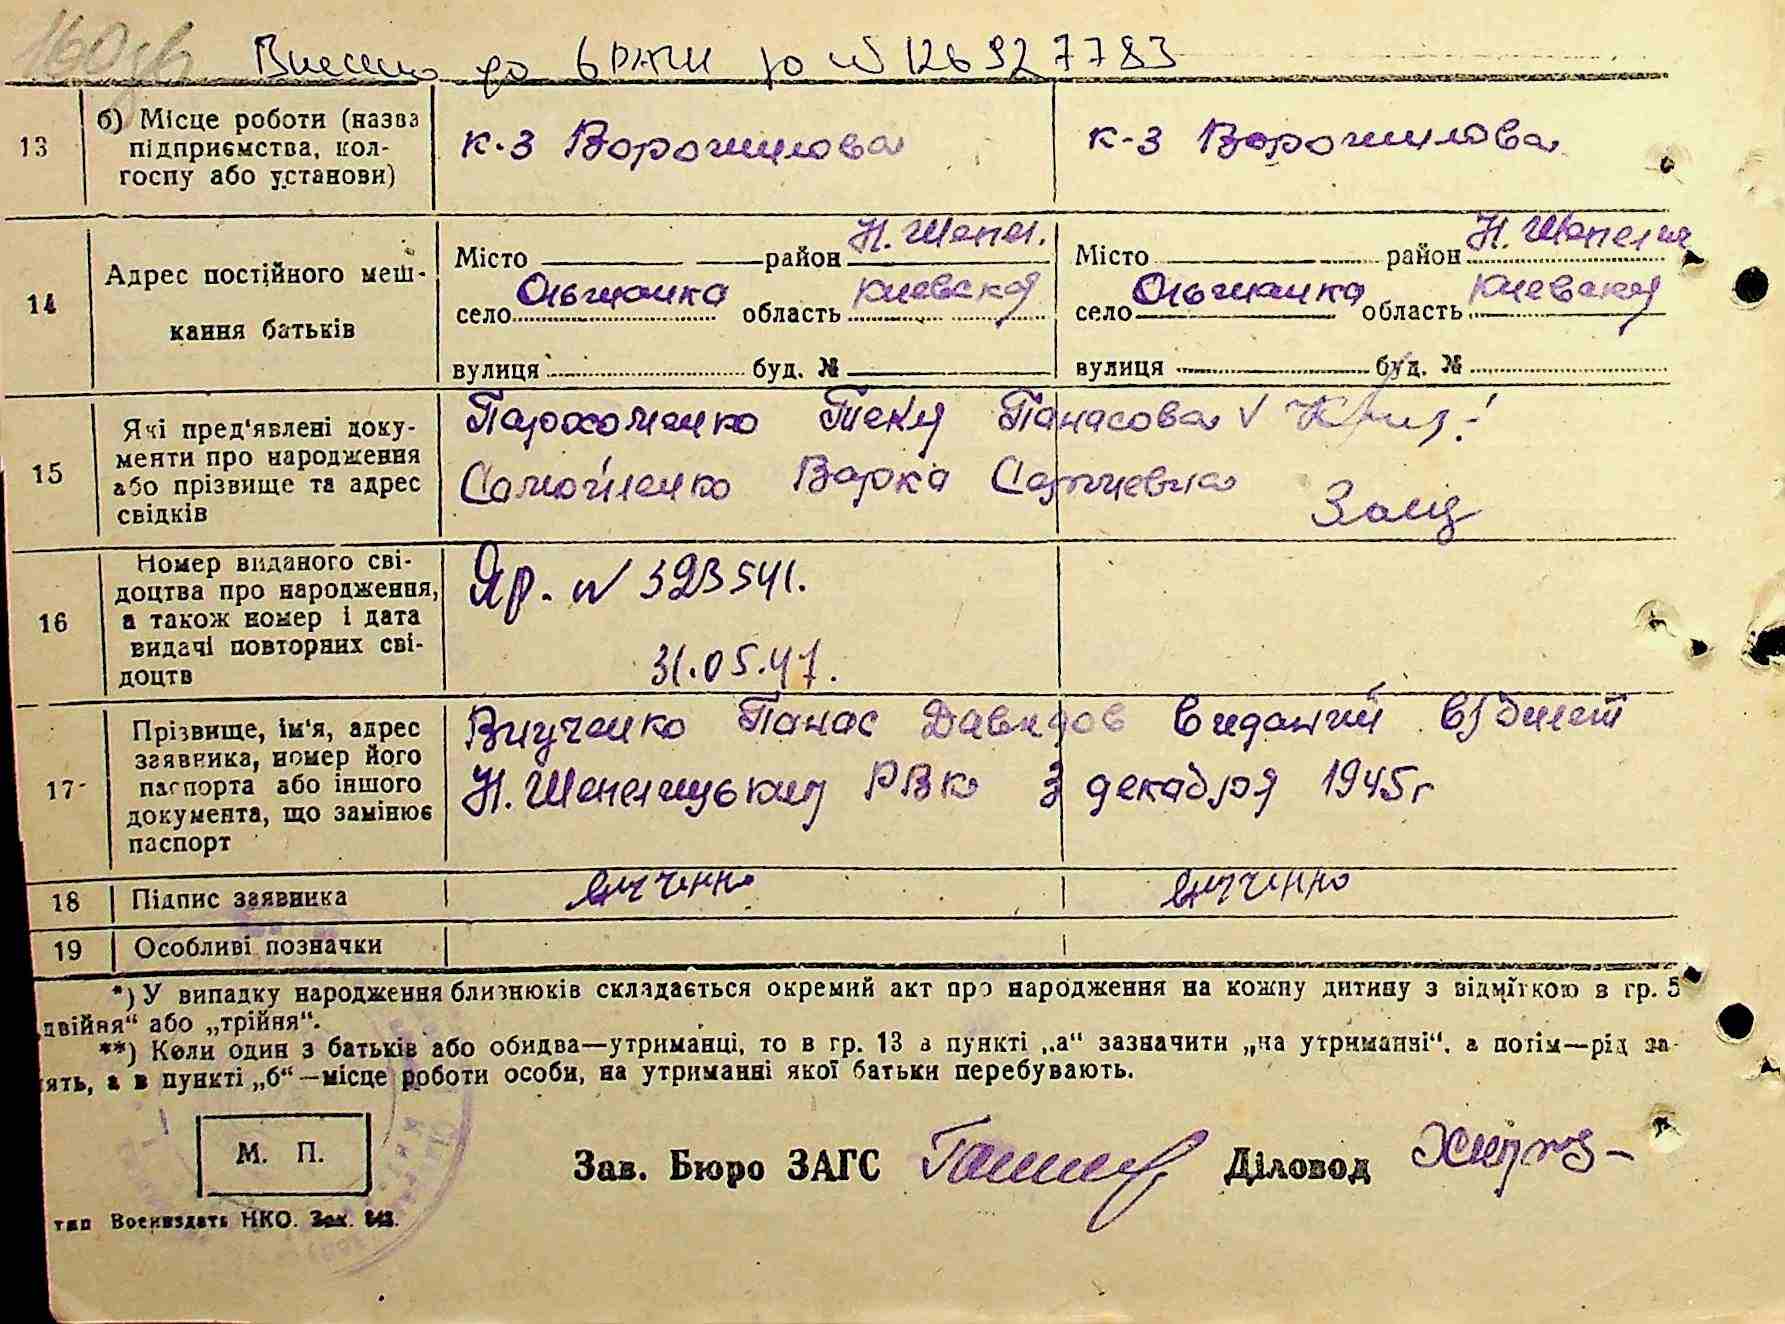 160зв
Внесено до ДРАЦС за № 126927783
13
б) Місце роботи (назва підприємства, кол-
госпу або установи)
к-з Ворошилова
к-з Ворошилова
14
Адрес постійного меш-
кання батьків
Місто район Н. Шепел.
село Ольшанка область Киевская
вулиця буд. №
Місто район Н. Шепелич
село Ольшанка область Киевская
вулиця буд. №
15
Які пред'явлені доку-
менти про народження
або прізвище та адрес
свідків
Пархоменко Текля Панасова
Самойленко Варка
16
Номер виданого сві-
доцтва про народження,
а також номер і дата
видачі повторних сві-
доцтв
№ 323541.
31.05.47.
17
Прізвище, ім'я, адрес
заявника, номер його
паспорта або іншого
документа, що замінює
паспорт
Панас Давидов виданий в/билет
Н. Шепелицьким РВК 3 декабря 1945г
18
Підпис заявника
19
Особливі позначки
*) У випадку народження близнюків складається окремий акт про народження на кожну дитину з відміткою в гр. 5
двійня“ або „трійня“.
**) Коли один з батьків або обидва—утриманці, то в гр. 13 в пункті „а“ зазначити „на утриманні“, а потім—рід за-
ять, а в пункті „б“—місце роботи особи, на утриманні якої батьки перебувають.
М. П.
Зав. Бюро ЗАГС
Діловод
тип Воениздать НКО. Зак. 843.